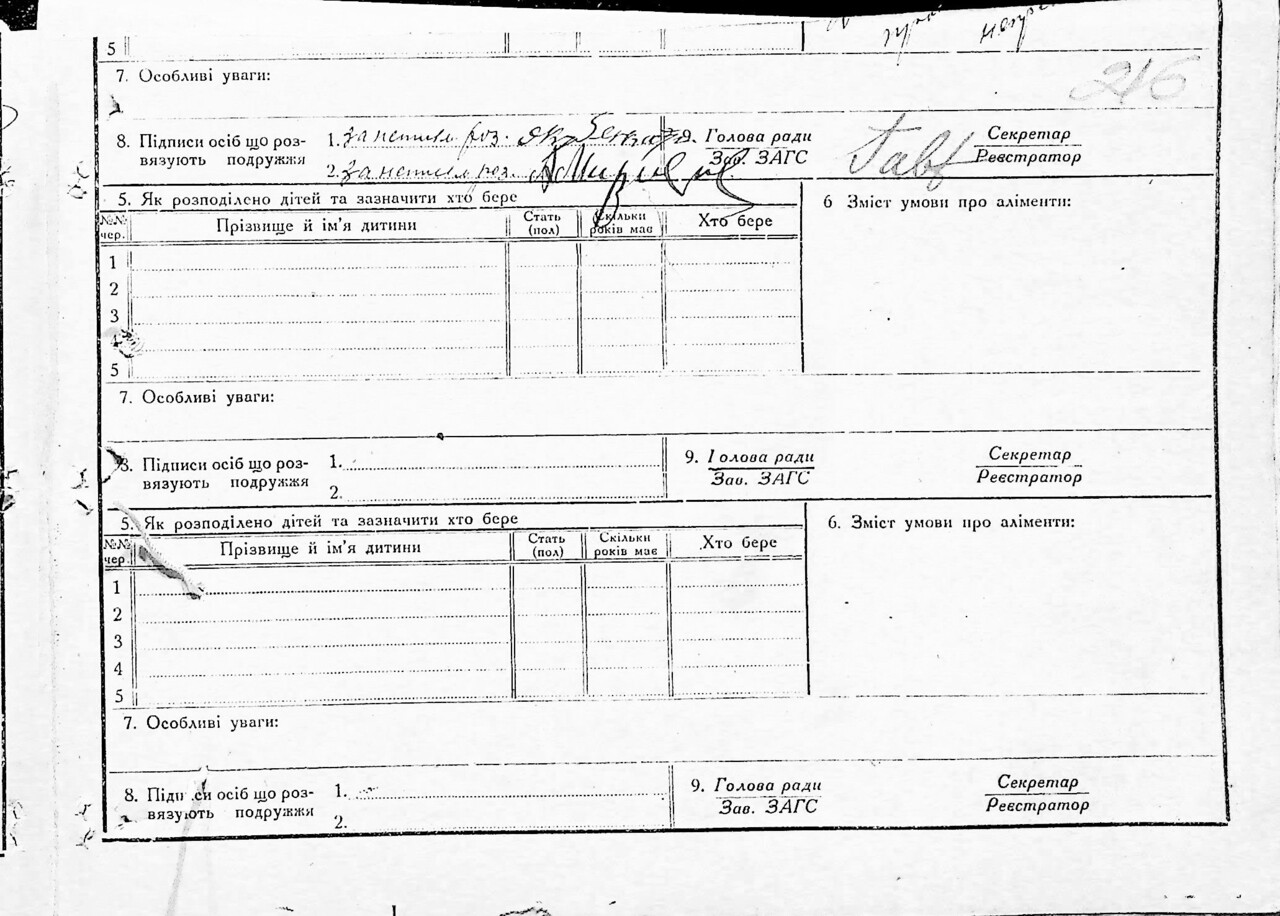 5
7. Особливі уваги:
216
8. Підписи осіб що роз-
вязують подружжя
1.
2.
9. Голова ради
Зав. ЗАГС
Секретар
Реєстратор
5. Як розподілено дітей та зазначити хто бере
№№ чер. Прізвище й ім'я дитини Стать (пол) Скільки років має Хто бере
1
2
3
4
5
6 Зміст умови про аліменти:
7. Особливі уваги:
8. Підписи осіб що роз-
вязують подружжя
1.
2.
9. Голова ради
Зав. ЗАГС
Секретар
Реєстратор
5. Як розподілено дітей та зазначити хто бере
№№ чер. Прізвище й ім'я дитини Стать (пол) Скільки років має Хто бере
1
2
3
4
5
6. Зміст умови про аліменти:
7. Особливі уваги:
8. Підписи осіб що роз-
вязують подружжя
1.
2.
9. Голова ради
Зав. ЗАГС
Секретар
Реєстратор